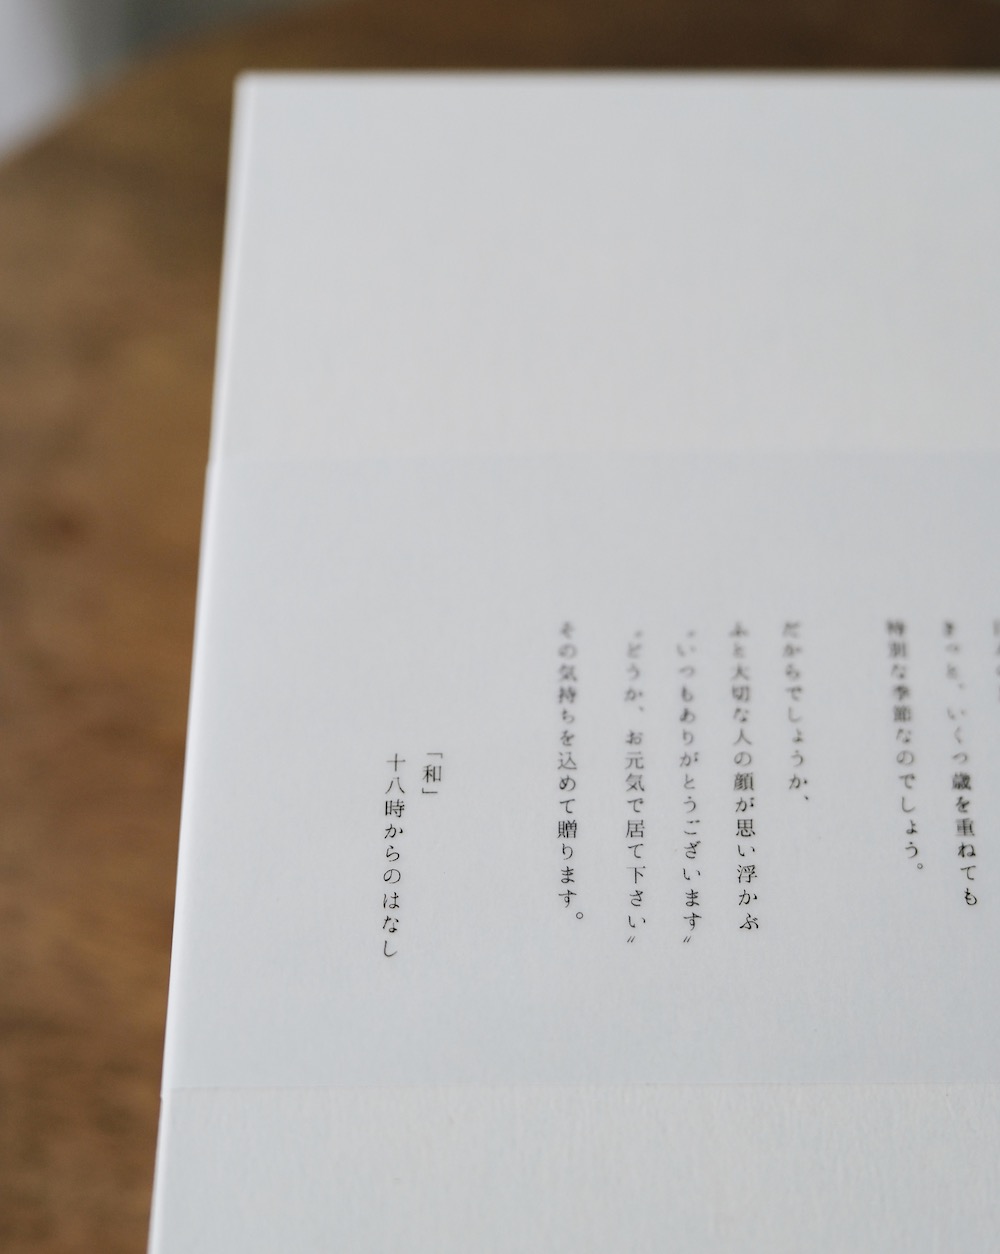 きっと、いくつ歳を重ねても
特別な季節なのでしょう。
だからでしょうか、
ふと大切な人の顔が思い浮かぶ
〝いつもありがとうございます〟
〝どうか、お元気で居て下さい〟
その気持ちを込めて贈ります。
「和」
十八時からのはなし